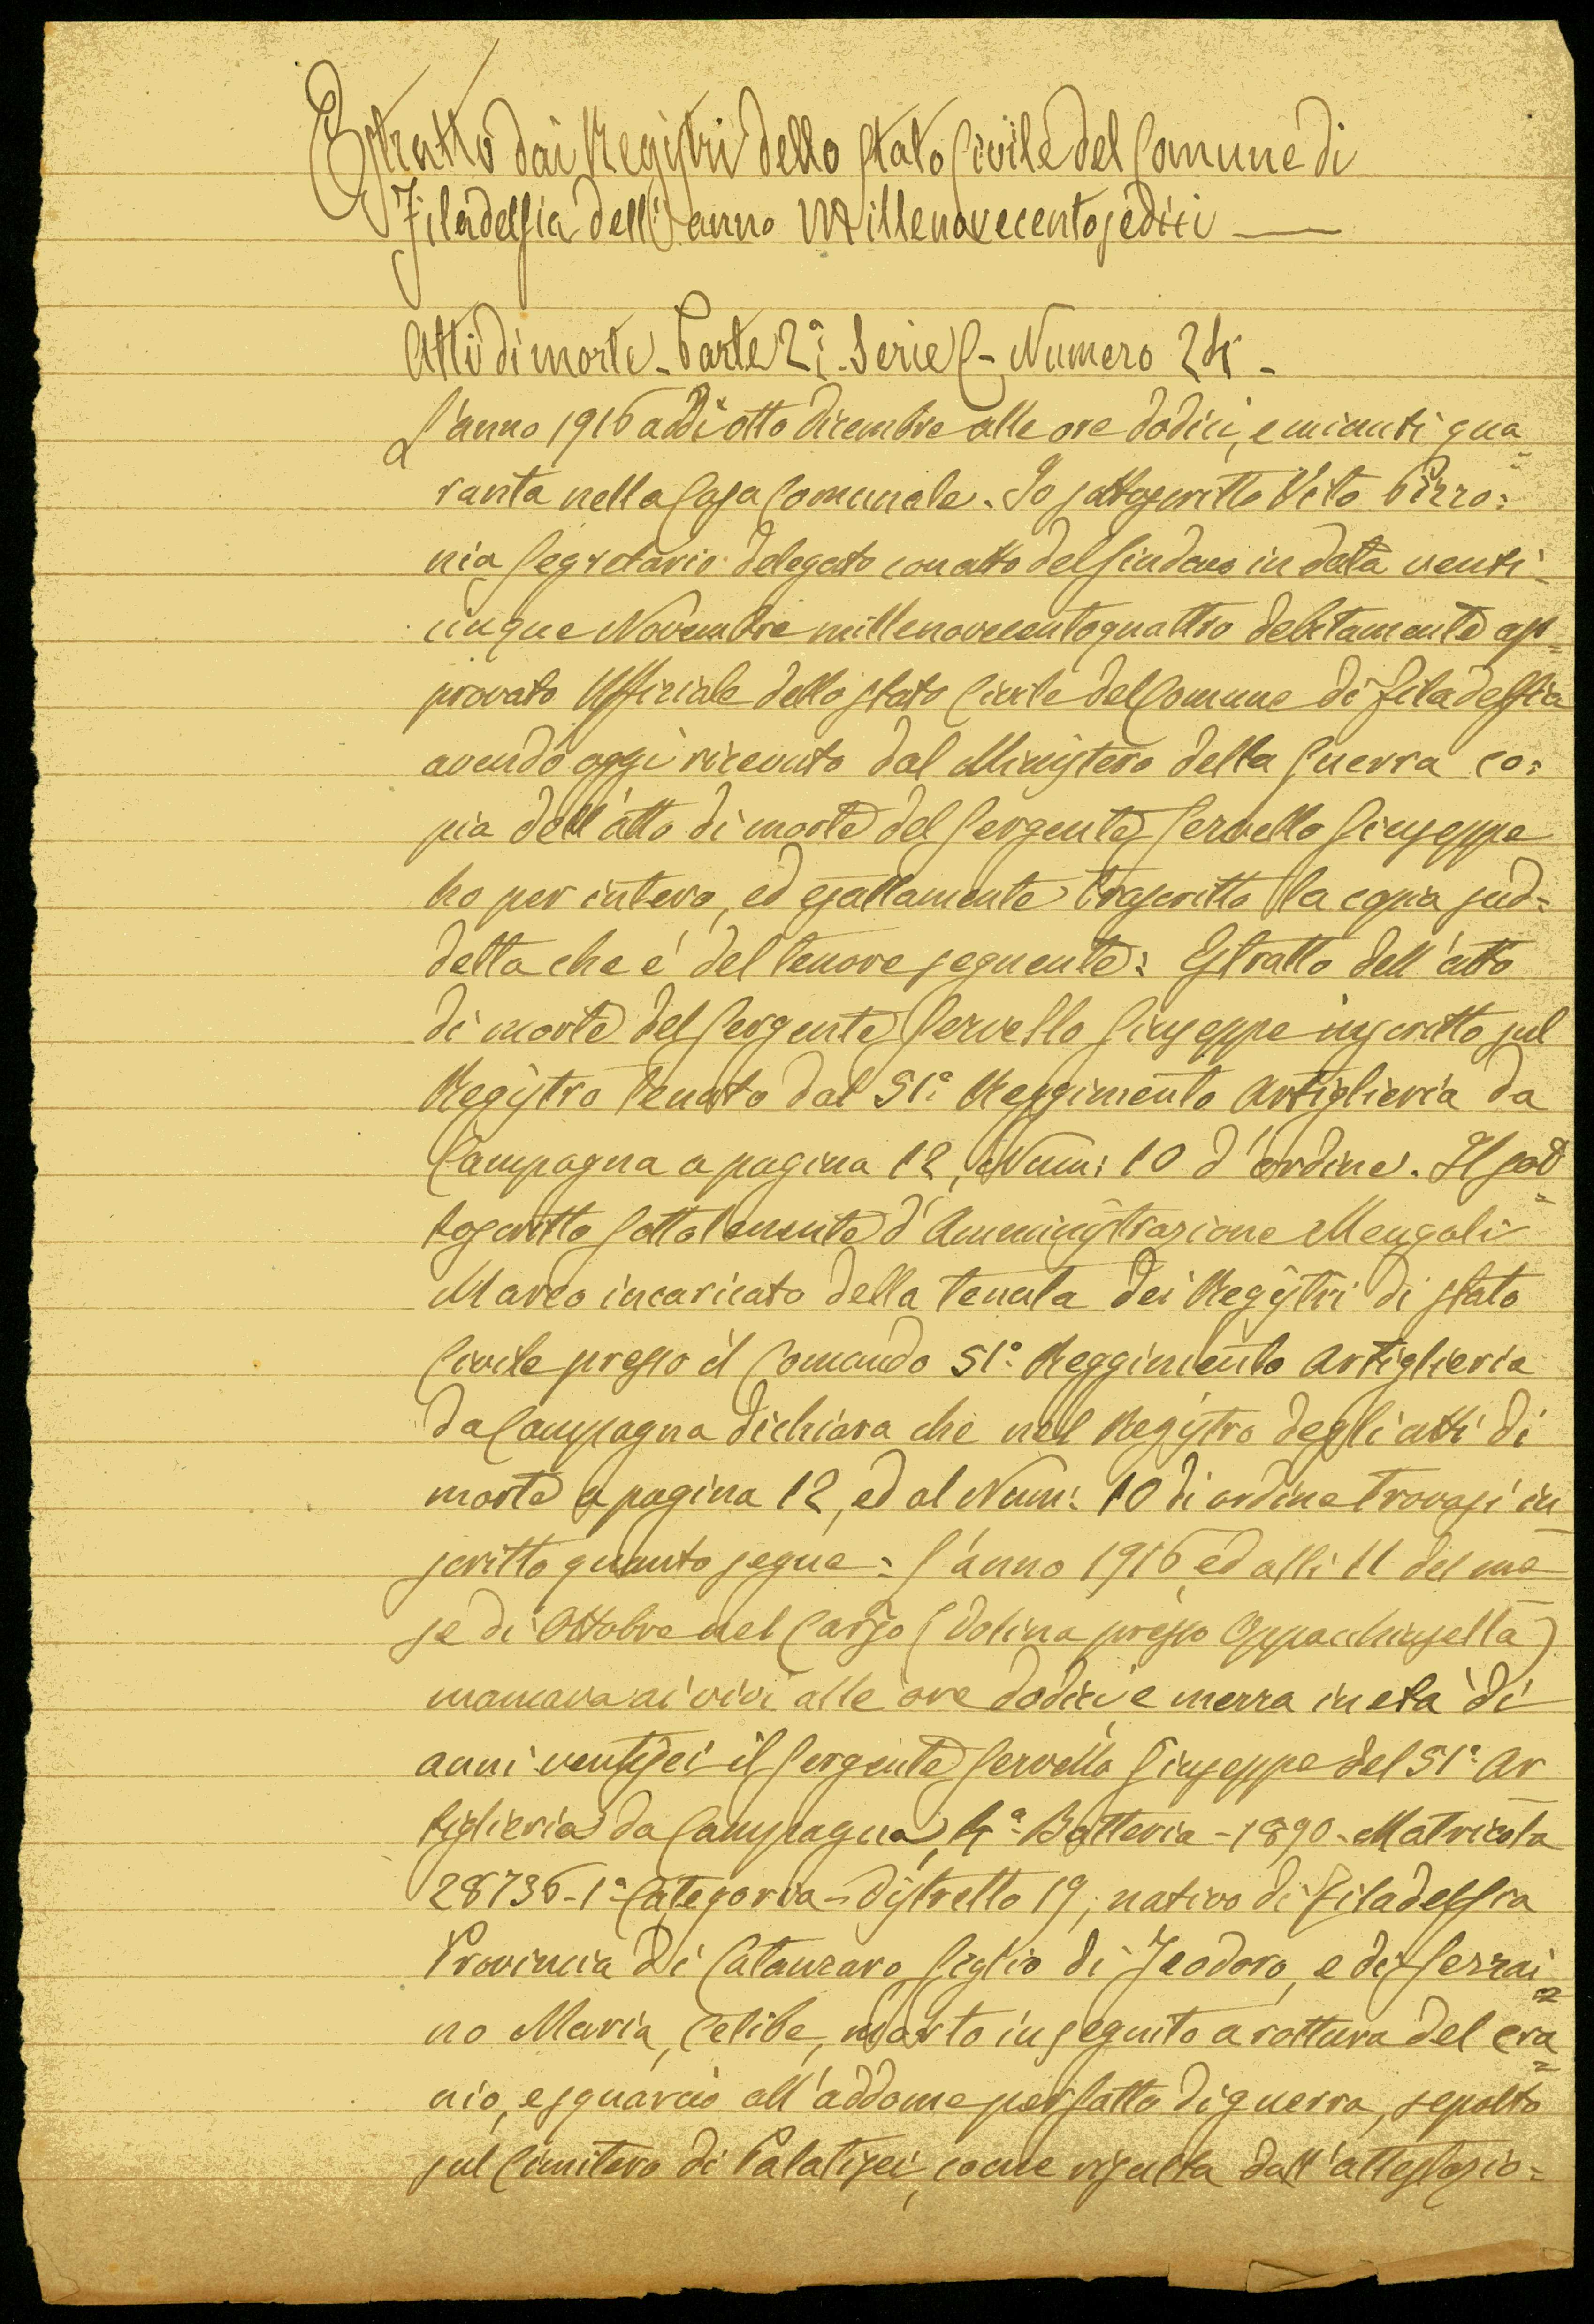 Estratto dai Registri dello Stato Civile del Comune di
Filadelfia dell'anno Millenovecentosedici —
Atti di morte - Parte 2ª - Serie C - Numero 24 -
L'anno 1916 addi otto Dicembre alle ore dodici, e minuti qua=
ranta nella Casa Comunale. Io sottoscritto Vito Pizzo=
nia Segretario delegato con atto del Sindaco in data venti=
cinque Novembre millenovecentoquattro debitamente ap=
provato Uffiziale dello Stato Civile del Comune di Filadelfia
avendo oggi ricevuto dal Ministero della Guerra co=
pia dell'atto di morte del Sergente Servello Giuseppe
ho per intero, ed esattamente trascritto la copia sud=
detta che é del tenore seguente: Estratto dell'atto
di morte del Sergente Servello Giuseppe inscritto sul
Registro tenuto dal 51º Reggimento Artiglieria da
Campagna a pagina 12, Num: 10 d'ordine. Il sot=
toscritto Sottotenente d'Amministrazione Mengoli
Marco incaricato della tenuta dei Registri di stato
Civile presso il Comando 51º Reggimento Artiglieria
da Campagna dichiara che nel Registro degli atti di
morte a pagina 12, ed al Num: 10 di ordine trovasi in
scritto quanto segue: L'anno 1916 ed alli 11 del me
se di Ottobre nel Carso (Dolina presso Oppacchiasella)
mancava ai vivi alle ore dodici e mezza in età di
anni ventisei il Sergente Servello Giuseppe del 51º Ar
tiglieria da Campagna, 4ª Batteria - 1890 - Matricola
28736 - 1ª Categoria - Distretto 19, nativo di Filadelfia
Provincia di Catanzaro figlio di Teodoro, e di Serrai=
no Maria, Celibe, morto in seguito a rottura del cra=
nio, e squarcio all'addome per fatto di guerra, sepolto
sul Cimitero di Palatisei, come risulta dall'attestazio=